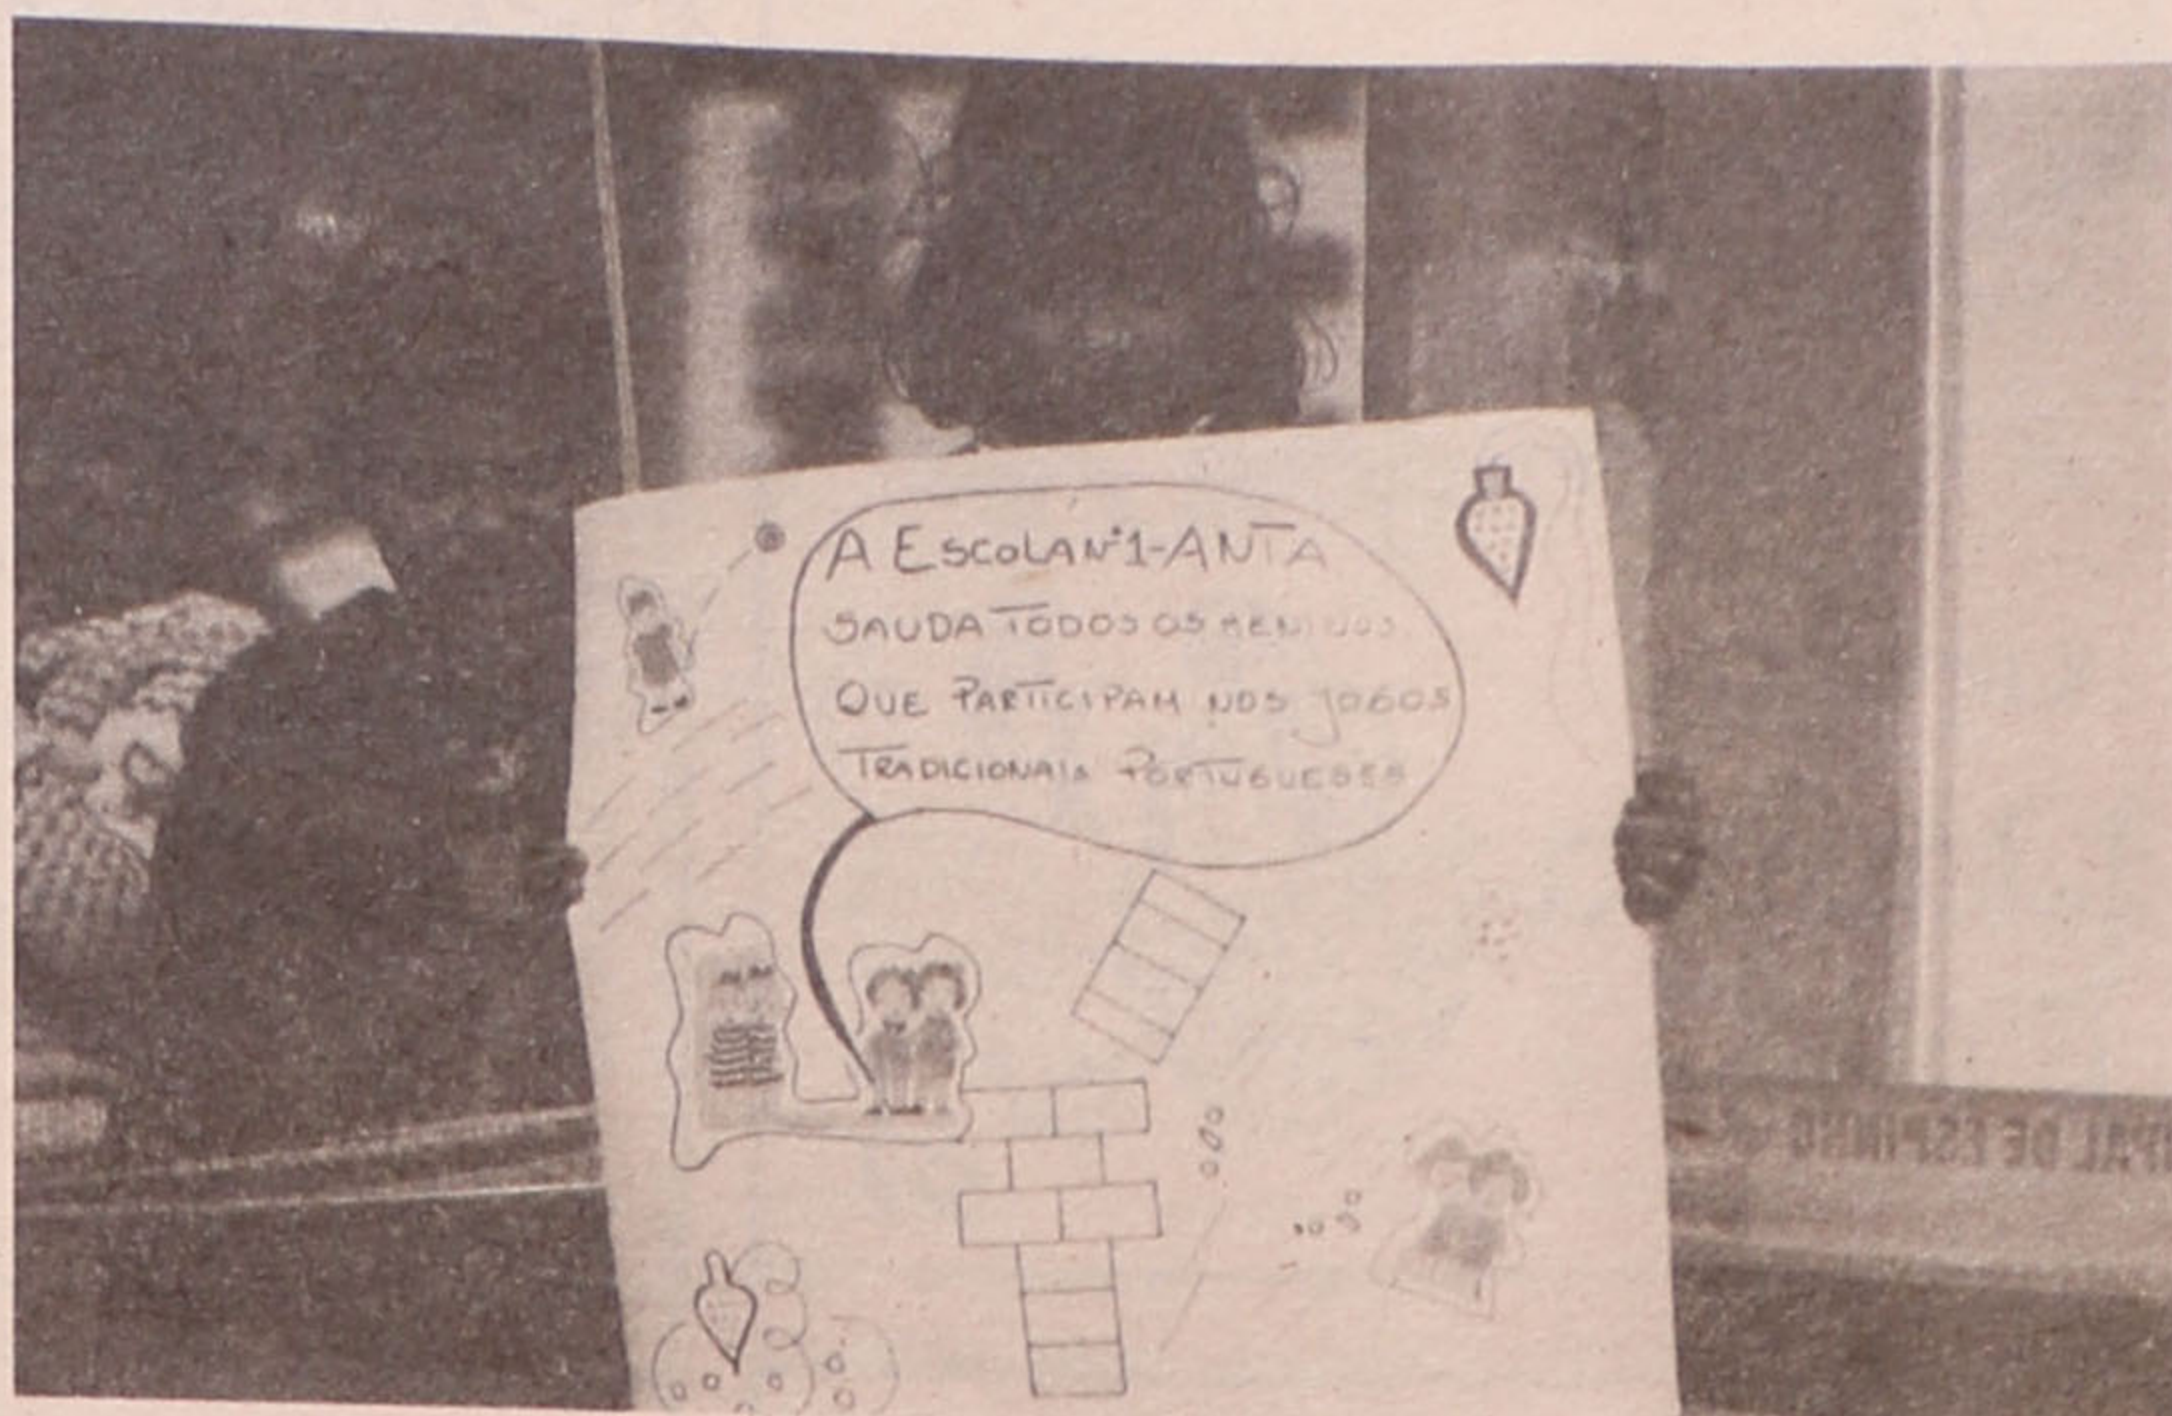 A ESCOLA Nº1-ANTA
SAUDA TODOS OS MENINOS
QUE PARTICIPAM NOS JOGOS
TRADICIONAIS PORTUGUESES
PAL DE ESPINHO